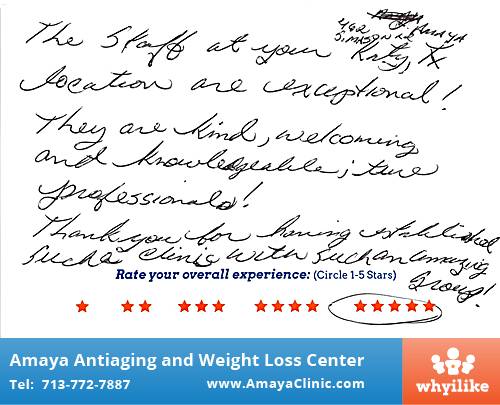 The Staff at your Katy, TX
location are exceptional!
They are kind, welcoming
and knowledgeable; true
professionals!
Thank you for having established
such a clinic with such an amazing
Group!
Rate your overall experience: (Circle 1-5 Stars)
Amaya Antiaging and Weight Loss Center
Tel: 713-772-7887 www.AmayaClinic.com
whyilike